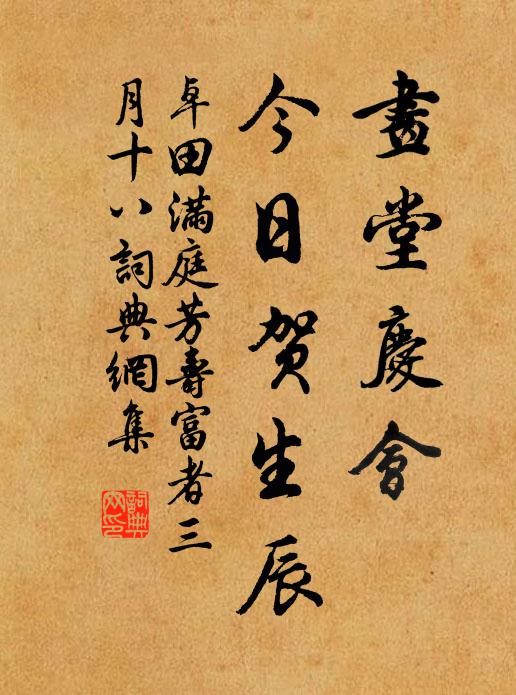 畫堂慶會
今日賀生辰
卓田滿庭芳壽富者三
月十八詞典網集
詞典網印